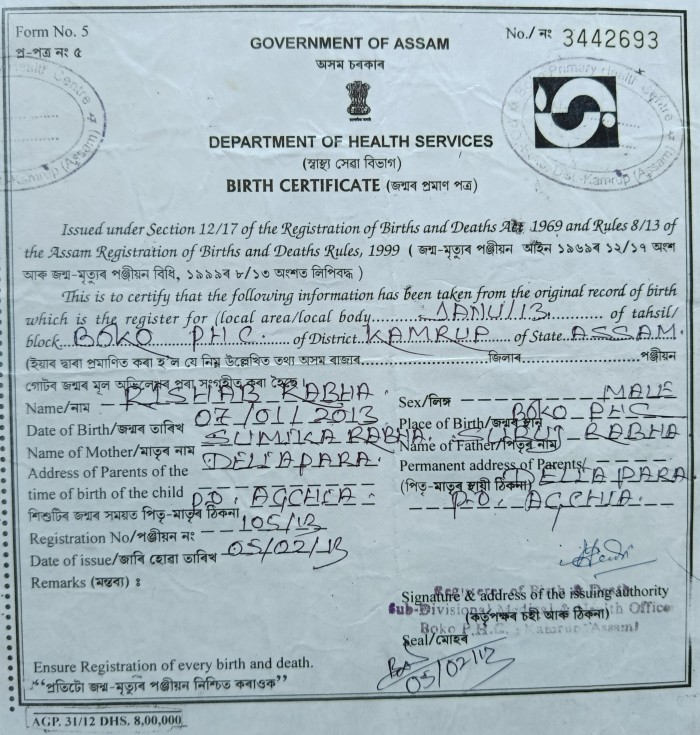 Form No. 5
প্ৰ-পত্ৰ নং ৫
No./ নং 3442693
GOVERNMENT OF ASSAM
অসম চৰকাৰ
DEPARTMENT OF HEALTH SERVICES
(স্বাস্থ্য সেৱা বিভাগ)
BIRTH CERTIFICATE (জন্মৰ প্ৰমাণ পত্ৰ)
Primary Health Centre
Kamrup (Assam)
Issued under Section 12/17 of the Registration of Births and Deaths Act 1969 and Rules 8/13 of
the Assam Registration of Births and Deaths Rules, 1999 ( জন্ম-মৃত্যুৰ পঞ্জীয়ন আইন ১৯৬৯ৰ ১২/১৭ অংশ
আৰু জন্ম-মৃত্যুৰ পঞ্জীয়ন বিধি, ১৯৯৯ৰ ৮/১৩ অংশত লিপিবদ্ধ )
This is to certify that the following information has been taken from the original record of birth
which is the register for (local area/local body JANU/13 of tahsil/
block BOKO PHC. of District KAMRUP of State ASSAM.
(ইয়াৰ দ্বাৰা প্ৰমাণিত কৰা হ'ল যে নিম্ন উল্লেখিত তথ্য অসম ৰাজ্যৰ জিলাৰ পঞ্জীয়ন
গোটৰ জন্মৰ মূল অভিলেখৰ পৰা সংগৃহীত কৰা হৈছে)
Name/নাম RISHAB RABHA. Sex/লিঙ্গ MALE
Date of Birth/জন্মৰ তাৰিখ 07/01/2013 Place of Birth/জন্মৰ স্থান BOKO PHC
Name of Mother/মাতৃৰ নাম SUMIKA RABHA. Name of Father/পিতৃৰ নাম RABHA
Address of Parents of the DELLAPARA. Permanent address of Parents/ DELLAPARA
time of birth of the child P.O. AGCHIA. (পিতৃ-মাতৃৰ স্থায়ী ঠিকনা) P.O. AGCHIA.
শিশুটিৰ জন্মৰ সময়ত পিতৃ-মাতৃৰ ঠিকনা
Registration No/পঞ্জীয়ন নং 105/13
Date of issue/জাৰি হোৱা তাৰিখ 05/02/13
Remarks (মন্তব্য) :
Signature & address of the issuing authority
(কৰ্তৃপক্ষৰ চহী আৰু ঠিকনা)
Registrar of Birth & Death
Sub-Divisional Medical & Health Office
Boko P.H.C., Kamrup (Assam)
Seal/মোহৰ
05/02/13
Ensure Registration of every birth and death.
“প্ৰতিটো জন্ম-মৃত্যুৰ পঞ্জীয়ন নিশ্চিত কৰাওক”
AGP. 31/12 DHS. 8,00,000